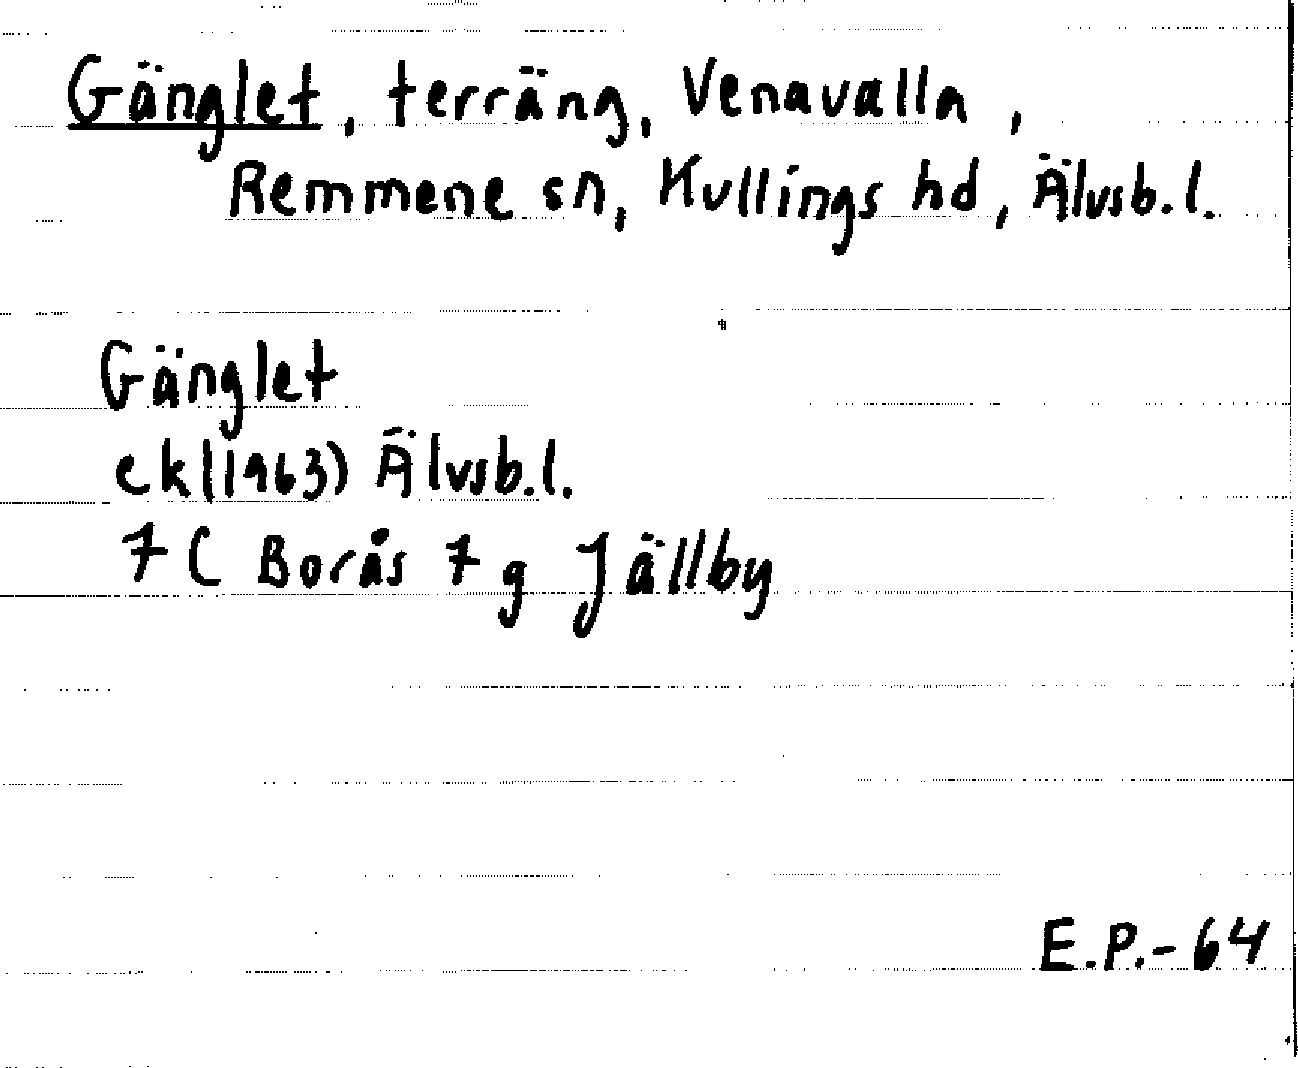 Gänglet, terräng, Venavalla,
Remmene sn, Kullings hd, Älvsb. l.
Gänglet
ek (1963) Älvsb. l.
7 C Borås 7 g Jällby
E.P.-64